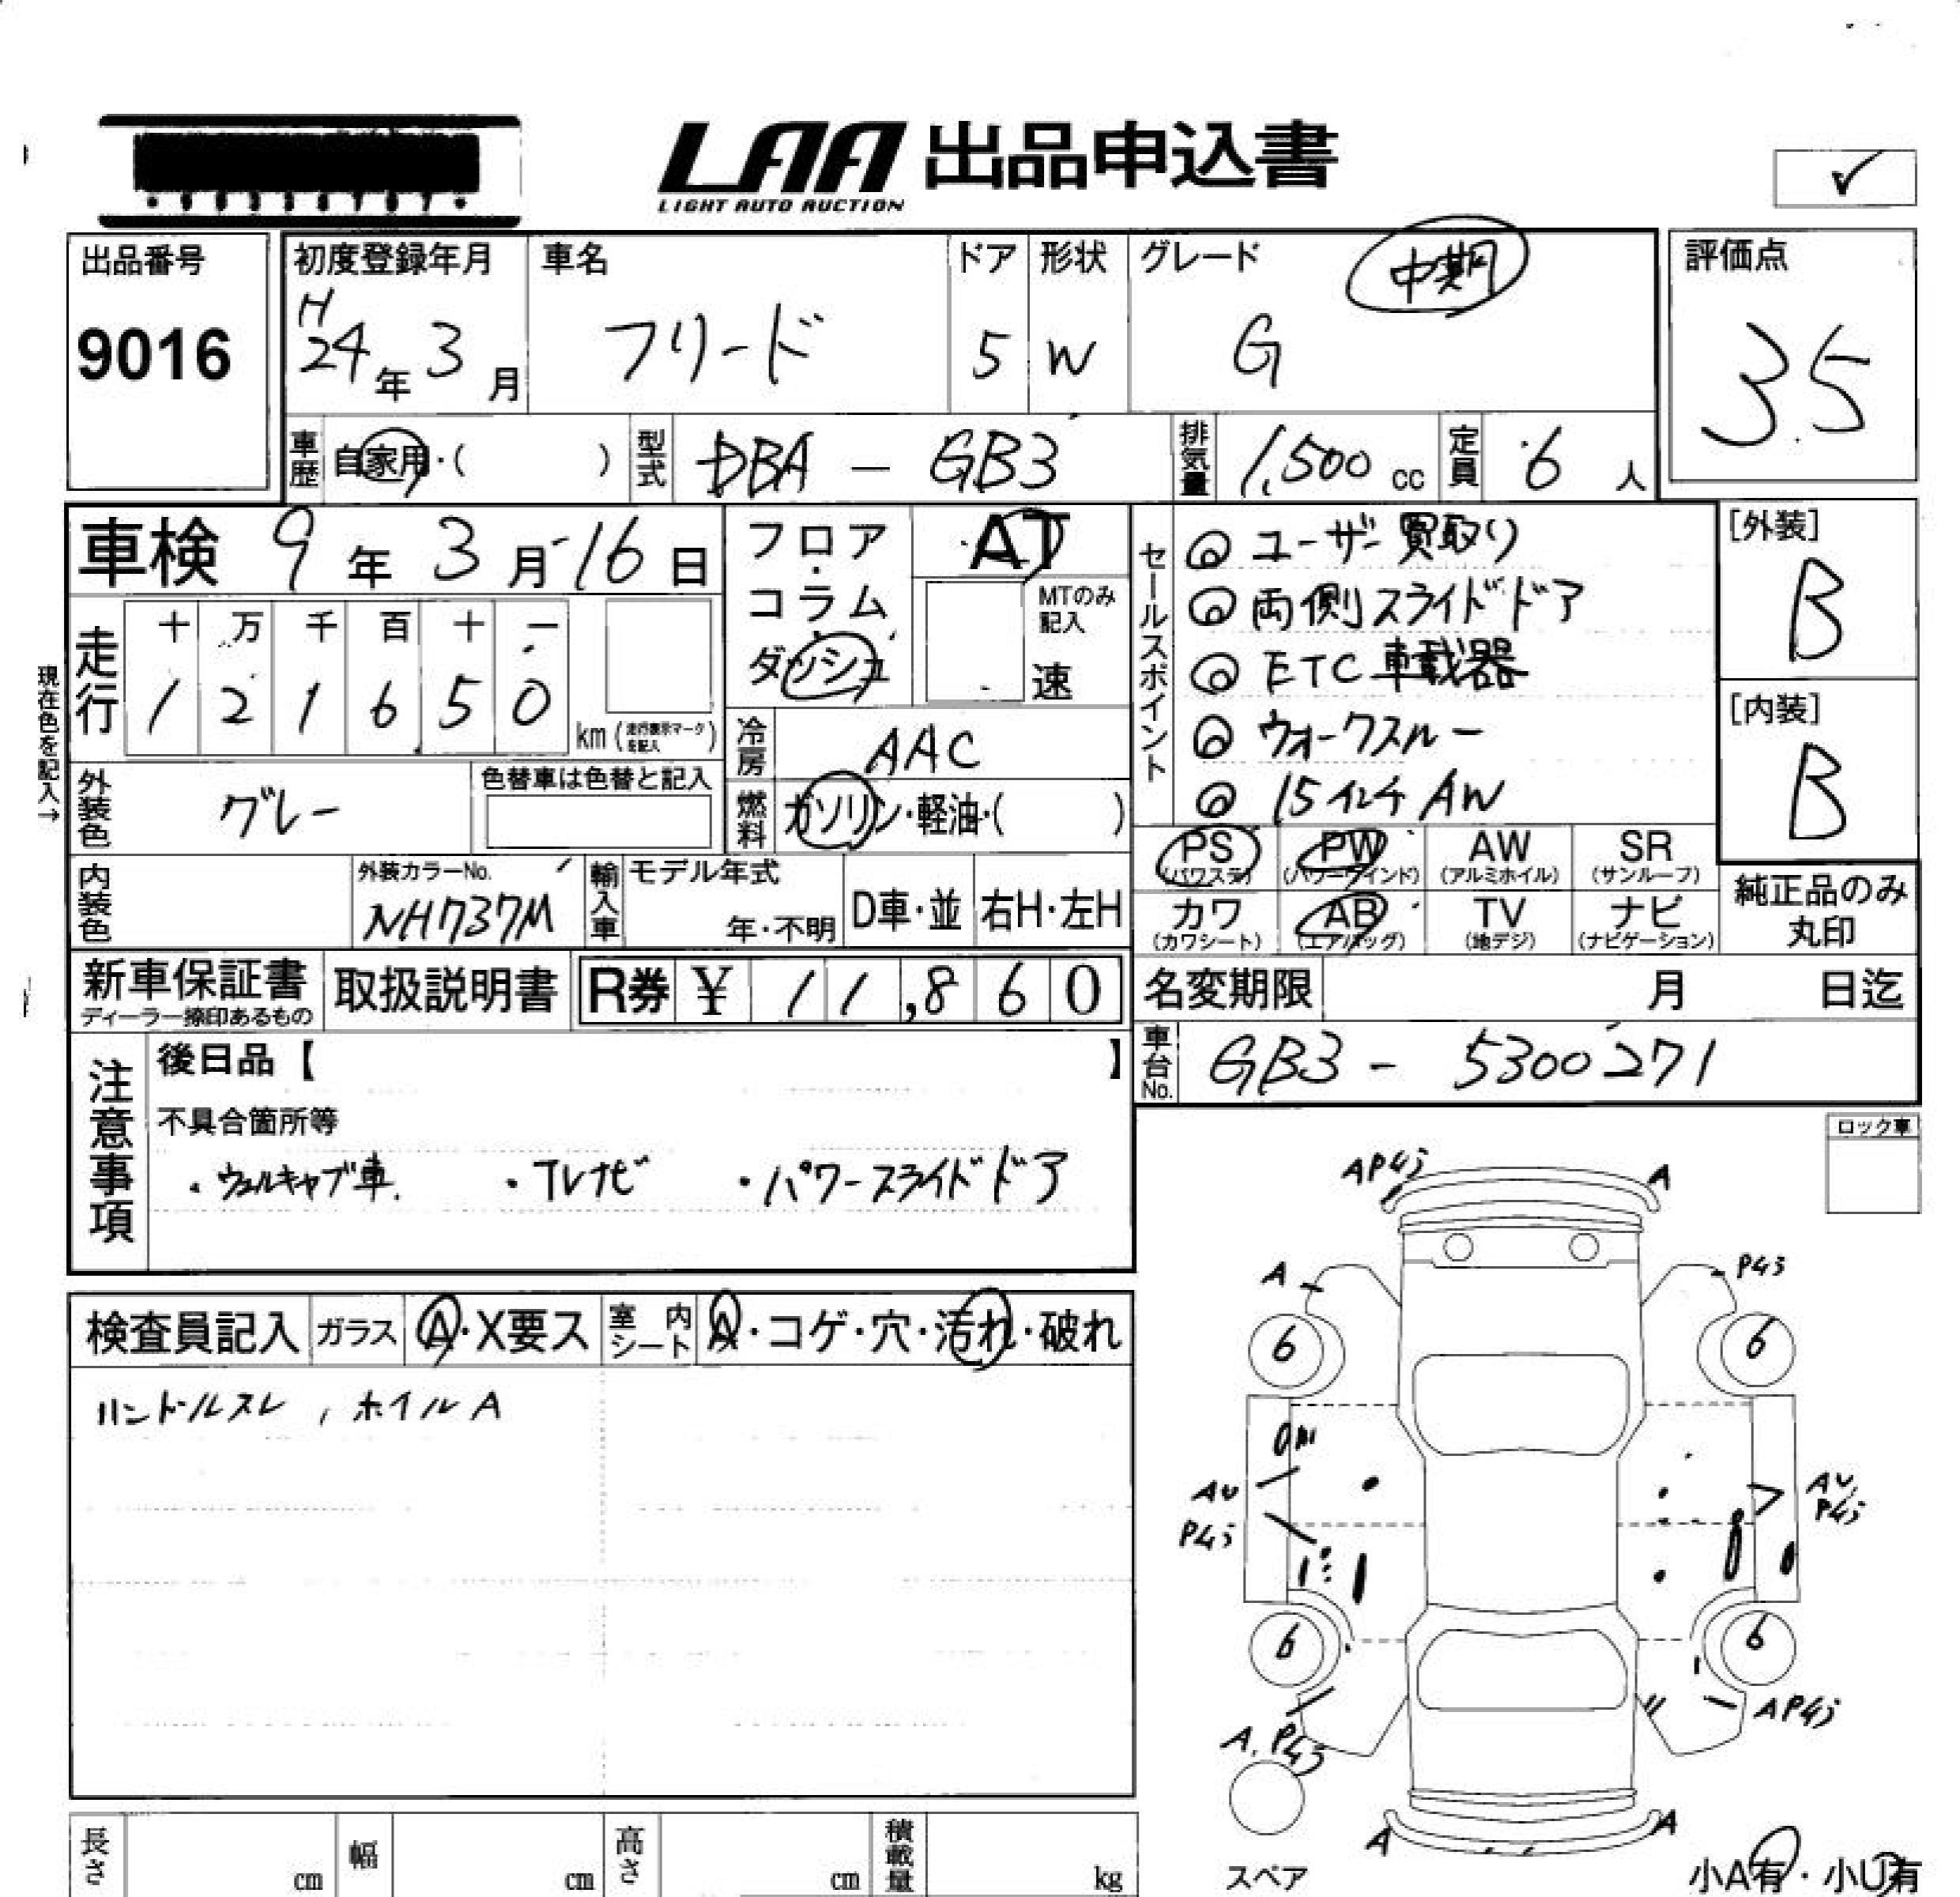 LAA 出品申込書
LIGHT AUTO AUCTION
✓
出品番号
9016
初度登録年月
H
24年 3月
車名
フリード
ドア
5
形状
W
グレード
中期
G
評価点
3.5
車歴
自家用・( )
型式
DBA - GB3
排気量
1,500 cc
定員
6 人
車検 9年 3月 16日
フロア・コラム
ダッシュ
AT
MTのみ記入
速
セールスポイント
◎ ユーザー買取り
◎ 両側スライドドア
◎ ETC 車載器
◎ ウォークスルー
◎ 15インチ AW
[外装]
B
[内装]
B
現在色を記入→
走行
十 万 千 百 十 一
1 2 1 6 5 0
km (走行表示マークを記入)
冷房
AAC
燃料
ガソリン・軽油・( )
外装色
グレー
色替車は色替と記入
内装色
外装カラーNo.
NH737M
輸入車
モデル年式
年・不明
D車・並
右H・左H
PS
(パワステ)
PW
(パワーウインド)
AW
(アルミホイル)
SR
(サンルーフ)
カワ
(カワシート)
AB
(エアバッグ)
TV
(地デジ)
ナビ
(ナビゲーション)
純正品のみ
丸印
新車保証書
ディーラー捺印あるもの
取扱説明書
R券 ¥ 11,860
名変期限 月 日迄
車台No.
GB3 - 5300271
注意事項
後日品【 】
不具合箇所等
・ウェルキャブ車. ・TVナビ ・パワースライドドア
ロック車
検査員記入
ガラス
A・X要ス
室内シート
A・コゲ・穴・汚れ・破れ
ハンドルスレ , ホイルA
AP4j
A
A
P4j
6
6
AU
P4j
AU
P4j
6
6
A. P4j
AP4j
A
A
スペア
小A有・小U有
長さ cm
幅 cm
高さ cm
積載量 kg